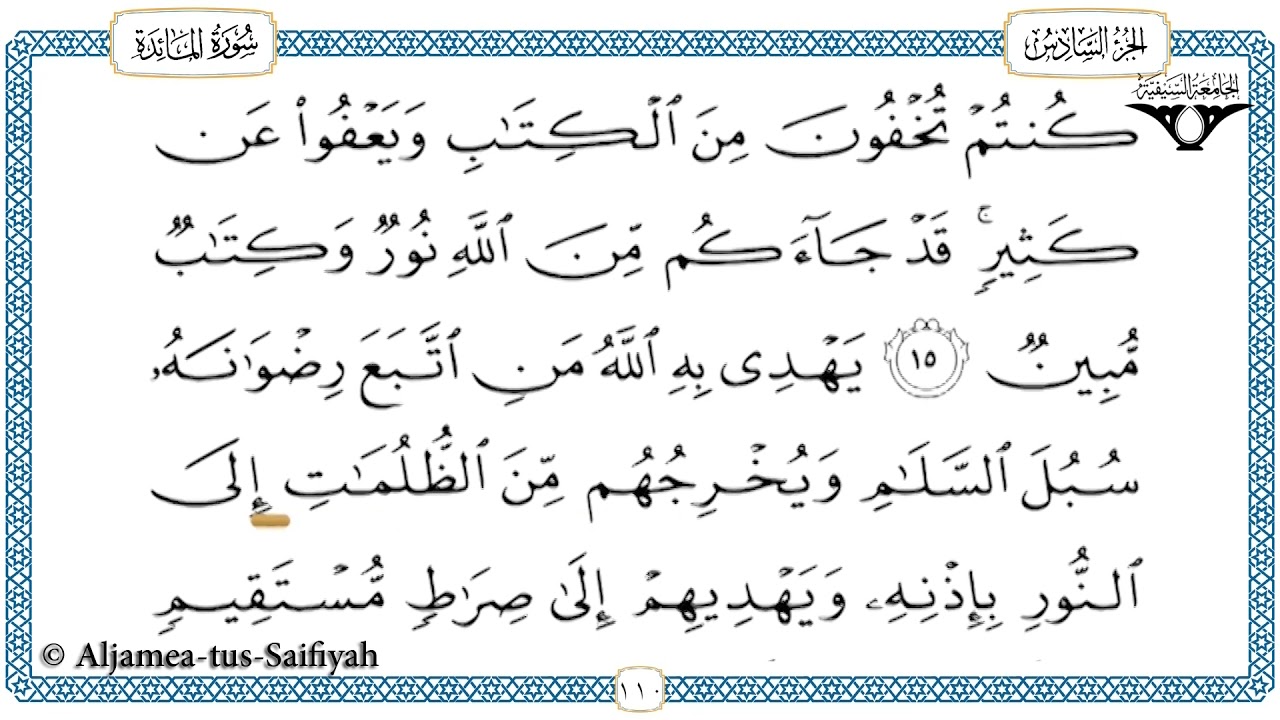 سُورَةُ المَائِدَة
الجُزءُ السَّادِسُ
الجَامِعَةُ السَّيْفِيَّة
كُنتُمْ تُخْفُونَ مِنَ ٱلْكِتَٰبِ وَيَعْفُوا۟ عَن
كَثِيرٍۢ ۚ قَدْ جَآءَكُم مِّنَ ٱللَّهِ نُورٌۭ وَكِتَٰبٌۭ
مُّبِينٌۭ ١٥ يَهْدِى بِهِ ٱللَّهُ مَنِ ٱتَّبَعَ رِضْوَٰنَهُۥ
سُبُلَ ٱلسَّلَٰمِ وَيُخْرِجُهُم مِّنَ ٱلظُّلُمَٰتِ إِلَى
ٱلنُّورِ بِإِذْنِهِۦ وَيَهْدِيهِمْ إِلَىٰ صِرَٰطٍۢ مُّسْتَقِيمٍۢ
© Aljamea-tus-Saifiyah
١١٠